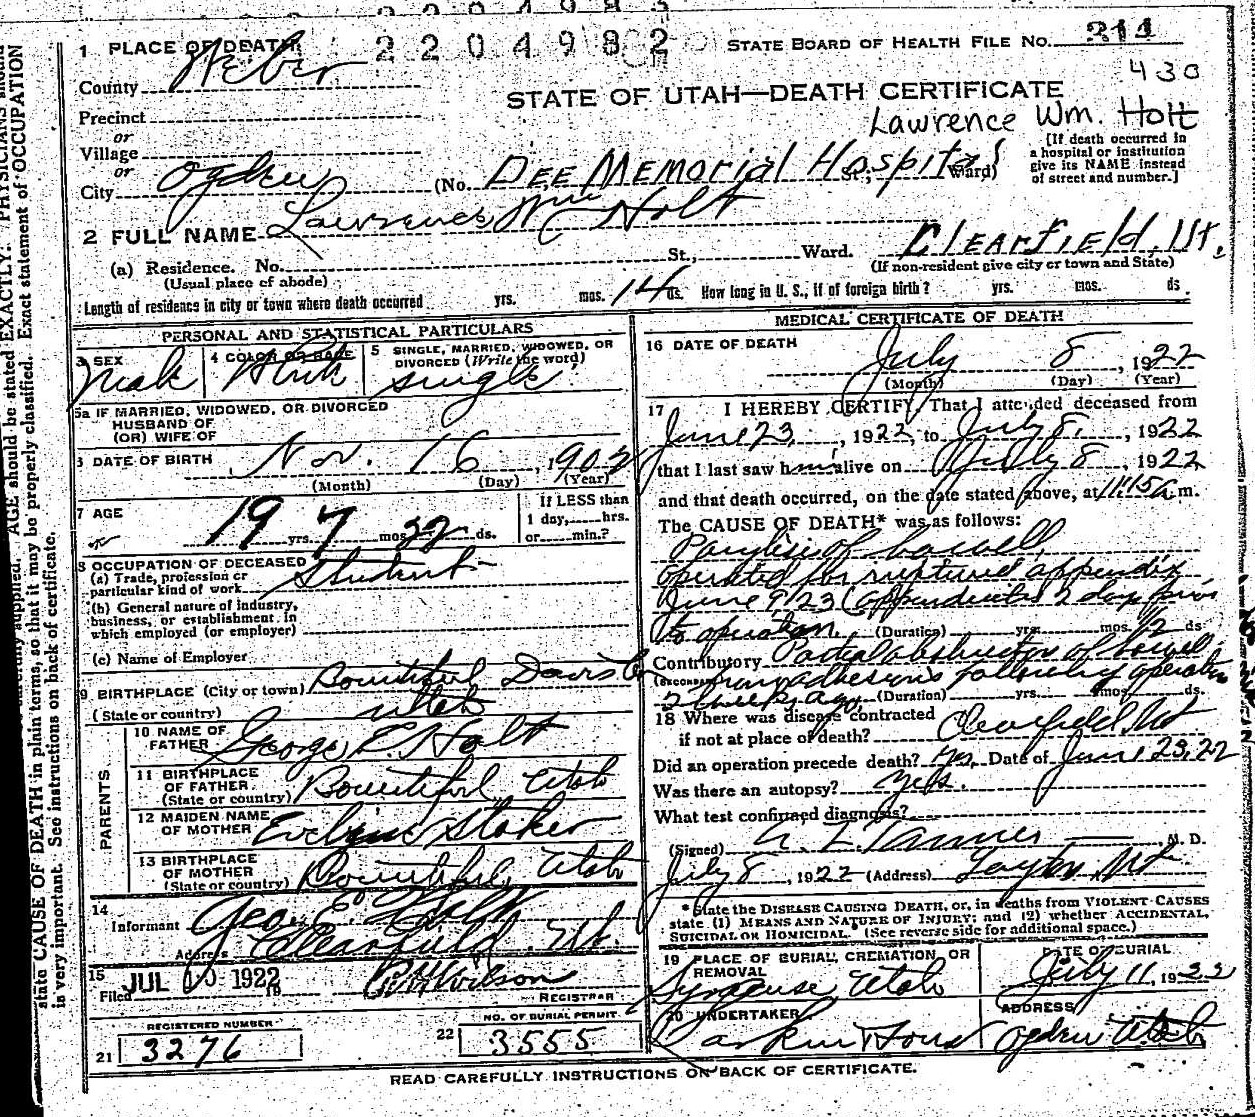 2204982
STATE BOARD OF HEALTH FILE NO. 211
430
1 PLACE OF DEATH
County Weber
STATE OF UTAH—DEATH CERTIFICATE
Precinct
or
Village
or
City Ogden
Lawrence Wm. Holt
(No. DEE MEMORIAL HOSPITAL St.; Ward)
[If death occurred in
a hospital or institution
give its NAME instead
of street and number.]
2 FULL NAME Lawrence Wm Holt
(a) Residence. No. St., Ward. Clearfield, Ut.
(Usual place of abode)
(If non-resident give city or town and State)
Length of residence in city or town where death occurred yrs. mos. 14 ds. How long in U. S., if of foreign birth? yrs. mos. ds.
PERSONAL AND STATISTICAL PARTICULARS
3 SEX
Male
4 COLOR OR RACE
White
5 SINGLE, MARRIED, WIDOWED, OR
DIVORCED (Write the word)
single
5a IF MARRIED, WIDOWED, OR DIVORCED
HUSBAND OF
(OR) WIFE OF
6 DATE OF BIRTH Nov. 16, 1902
(Month) (Day) (Year)
7 AGE
19 yrs. 7 mos. 22 ds.
If LESS than
1 day, hrs.
or min.?
8 OCCUPATION OF DECEASED
(a) Trade, profession or
particular kind of work Student
(b) General nature of industry,
business, or establishment in
which employed (or employer)
(c) Name of Employer
9 BIRTHPLACE (City or town) Bountiful Davis Co
(State or country) Utah
PARENTS
10 NAME OF
FATHER George E. Holt
11 BIRTHPLACE
OF FATHER
(State or country) Bountiful Utah
12 MAIDEN NAME
OF MOTHER Eveline Stoker
13 BIRTHPLACE
OF MOTHER
(State or country) Bountiful, Utah
14
Informant Geo. E. Holt
Address Clearfield, Ut.
15
Filed JUL 10 1922 19 Wilson
REGISTRAR
REGISTERED NUMBER
21 3276
NO. OF BURIAL PERMIT
22 3555
MEDICAL CERTIFICATE OF DEATH
16 DATE OF DEATH
July 8, 1922
(Month) (Day) (Year)
17 I HEREBY CERTIFY, That I attended deceased from
June 23, 1922, to July 8, 1922
that I last saw him alive on July 8, 1922
and that death occurred, on the date stated above, at 11:15 a m.
The CAUSE OF DEATH* was as follows:
Paralisis of bowell,
operated for ruptured appendix
June 23 (appendicitis 2 days prior
to operation. (Duration) yrs. mos. 12 ds.
Contributory Partial obstruction of bowell
(SECONDARY) adhesions following operation
2 weeks ago. (Duration) yrs. mos. ds.
18 Where was disease contracted
if not at place of death? Clearfield Ut
Did an operation precede death? Yes Date of June 23, 22
Was there an autopsy? Yes.
What test confirmed diagnosis?
(Signed) A. Z. Tanner M. D.
July 8, 1922 (Address) Layton, Ut.
*State the DISEASE CAUSING DEATH, or, in deaths from VIOLENT CAUSES
state (1) MEANS AND NATURE OF INJURY; and (2) whether ACCIDENTAL,
SUICIDAL OR HOMICIDAL. (See reverse side for additional space.)
19 PLACE OF BURIAL, CREMATION, OR
REMOVAL
Syracuse Utah
DATE OF BURIAL
July 11, 1922
20 UNDERTAKER
Larkin & Sons
ADDRESS
Ogden Utah
READ CAREFULLY INSTRUCTIONS ON BACK OF CERTIFICATE.
carefully supplied. AGE should be stated EXACTLY. PHYSICIANS should
state CAUSE OF DEATH in plain terms, so that it may be properly classified. Exact statement of OCCUPATION
is very important. See instructions on back of certificate.